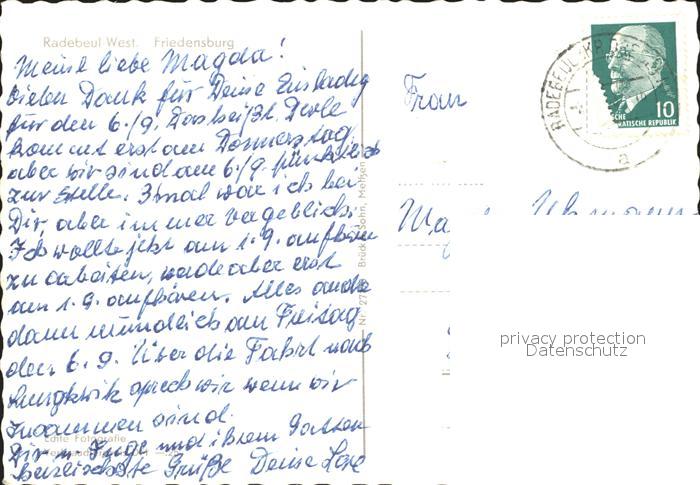 Radebeul West. Friedensburg
Meine liebe Magda!
Vielen Dank für Deine Einladg
für den 6./9. Das heißt
kommt erst am Donnerstag,
aber wir sind am 6./9. pünktlich
zur Stelle. 3mal war ich bei
Dir, aber immer vergeblich.
Ich wollte jetzt am 1.9. aufhören
zu arbeiten, werde aber erst
am 1.9. aufhören. Alles andre
dann mündlich am Freitag
den 6.9. Über die Fahrt nach
sprech wir wenn wir
zusammen sind.
Echte Fotografie
Dir u. Inge und ihrem Gatten
herzlichste Grüße Deine
Brück & Sohn, Meißen
Frau
RADEBEUL
10
SCHE
RATISCHE REPUBLIK
a
privacy protection
Datenschutz